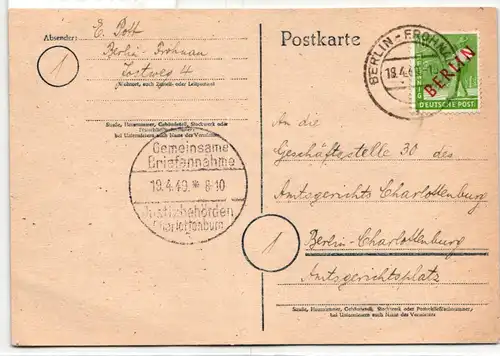 Absender: E. Pott
Berlin-Frohnau
Zostweg 4
Wohnort, auch Zustell- oder Leitpostamt
1
Straße, Hausnummer, Gebäudeteil, Stockwerk oder
bei Untermietern auch Name des Vermieters
Gemeinsame
Briefannahme
19.4.49.* 8-10
Justizbehörden
Charlottenburg
Postkarte
BERLIN-FROHNAU
19.4.49
BERLIN
DEUTSCHE POST
An die
Geschäftsstelle 30 des
Amtsgerichts Charlottenburg
1
Berlin-Charlottenburg
Amtsgerichtsplatz
Straße, Hausnummer, Gebäudeteil, Stockwerk oder Postschließfachnummer;
bei Untermietern auch Name des Vermieters